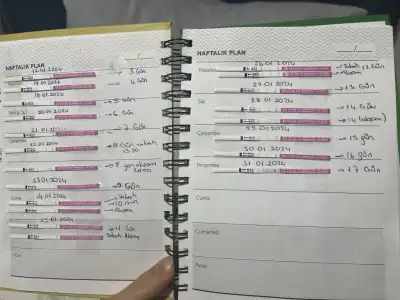 HAFTALIK PLAN
17.01.2024
3. Gün
Pazartesi
18.01.2024
4. Gün
19.01.2024
5. Gün
20.01.2024
6. Gün
21.01.2024
7. Gün
Çarşamba
22.01.2024
8. Gün sabah
8. gün akşam
23.01.2024
9. Gün
Cuma
24.01.2024
Sabah
10. Gün
Akşam
25.01.2024
11. Gün
Sabah
Pazar
HAFTALIK PLAN
26.01.2024
Pazartesi
Sabah 12 Gün
Akşam
27.01.2024
13 Gün
Salı
28.01.2024
14 Gün
14 (akşam)
Çarşamba
29.01.2024
15 gün
30.01.2024
16 gün
Perşembe
31.01.2024
17 Gün
Cuma
Cumartesi
Pazar